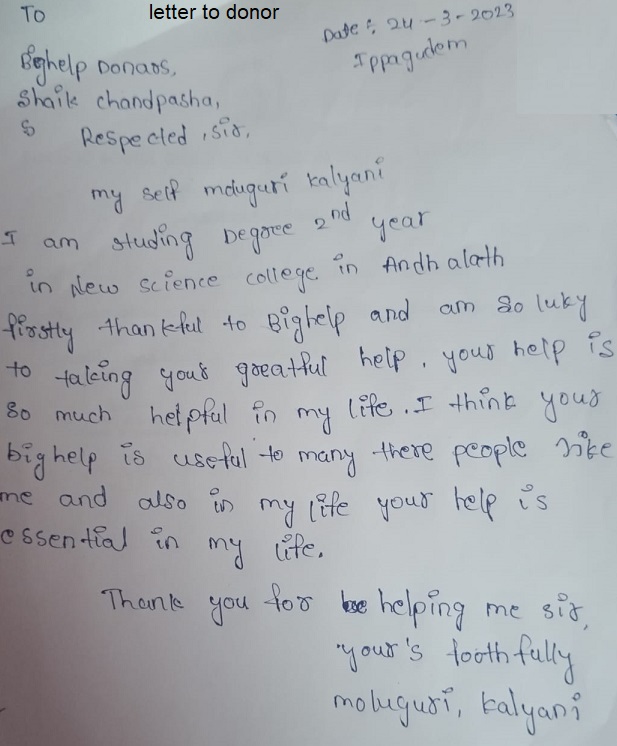 To
letter to donor
Date : 24-3-2023
Ippagudem
Bighelp Donaos,
Shaik chandpasha,
S Respected, sir,
my self moluguri kalyani
I am studing Degree 2nd year
in New science college in Andhalath
firstly thankful to Bighelp and am so luky
to taking your greatful help, your help is
so much helpful in my life. I think your
big help is useful to many there people like
me and also in my life your help is
essential in my life.
Thank you for be helping me sir,
your's toothfully
moluguri, kalyani